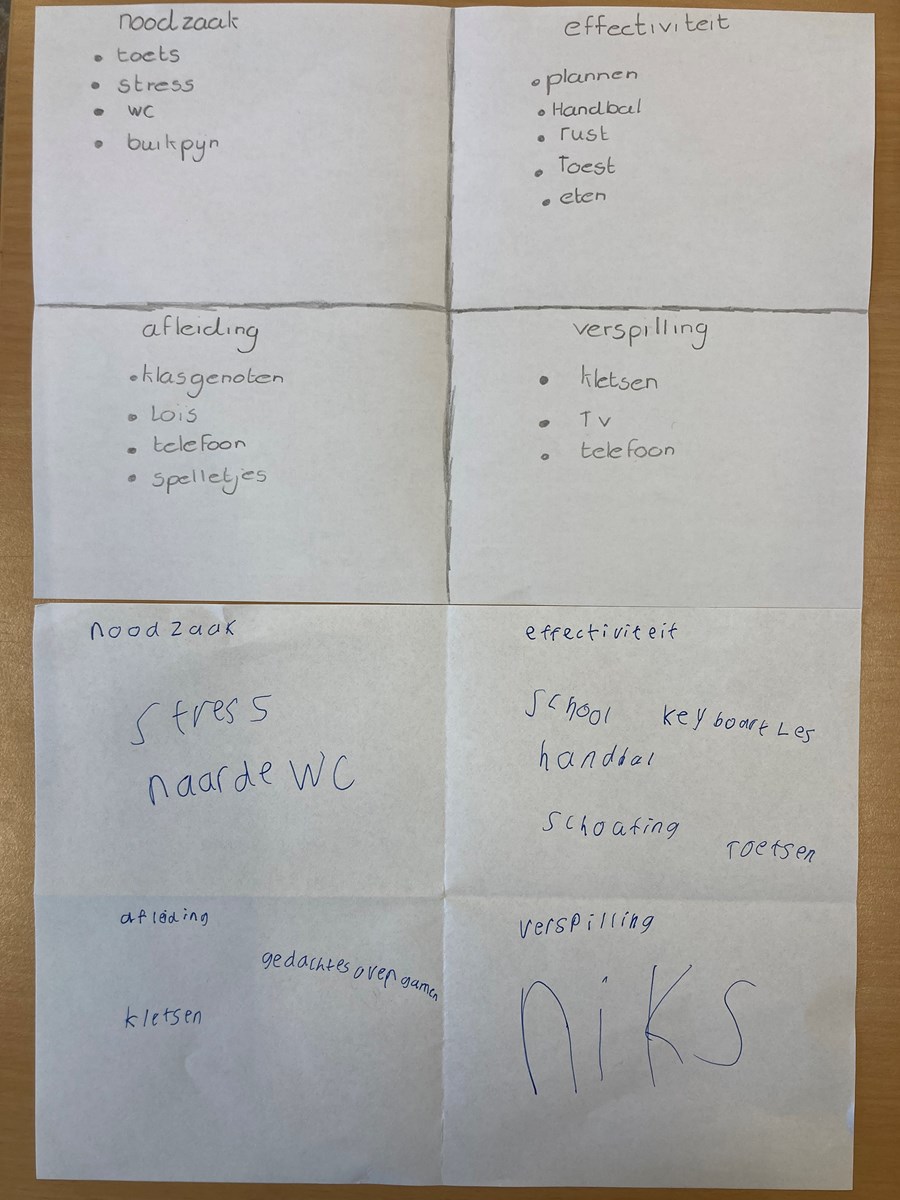 noodzaak
• toets
• stress
• WC
• buikpijn
effectiviteit
• plannen
• Handbal
• rust
• Toest
• eten
afleiding
• klasgenoten
• Lois
• telefoon
• spelletjes
verspilling
• kletsen
• Tv
• telefoon
noodzaak
stress
naar de WC
effectiviteit
school keyboart Les
handbal
schoating
Toetsen
afleiding
gedachtes over gamen
kletsen
verspilling
niks